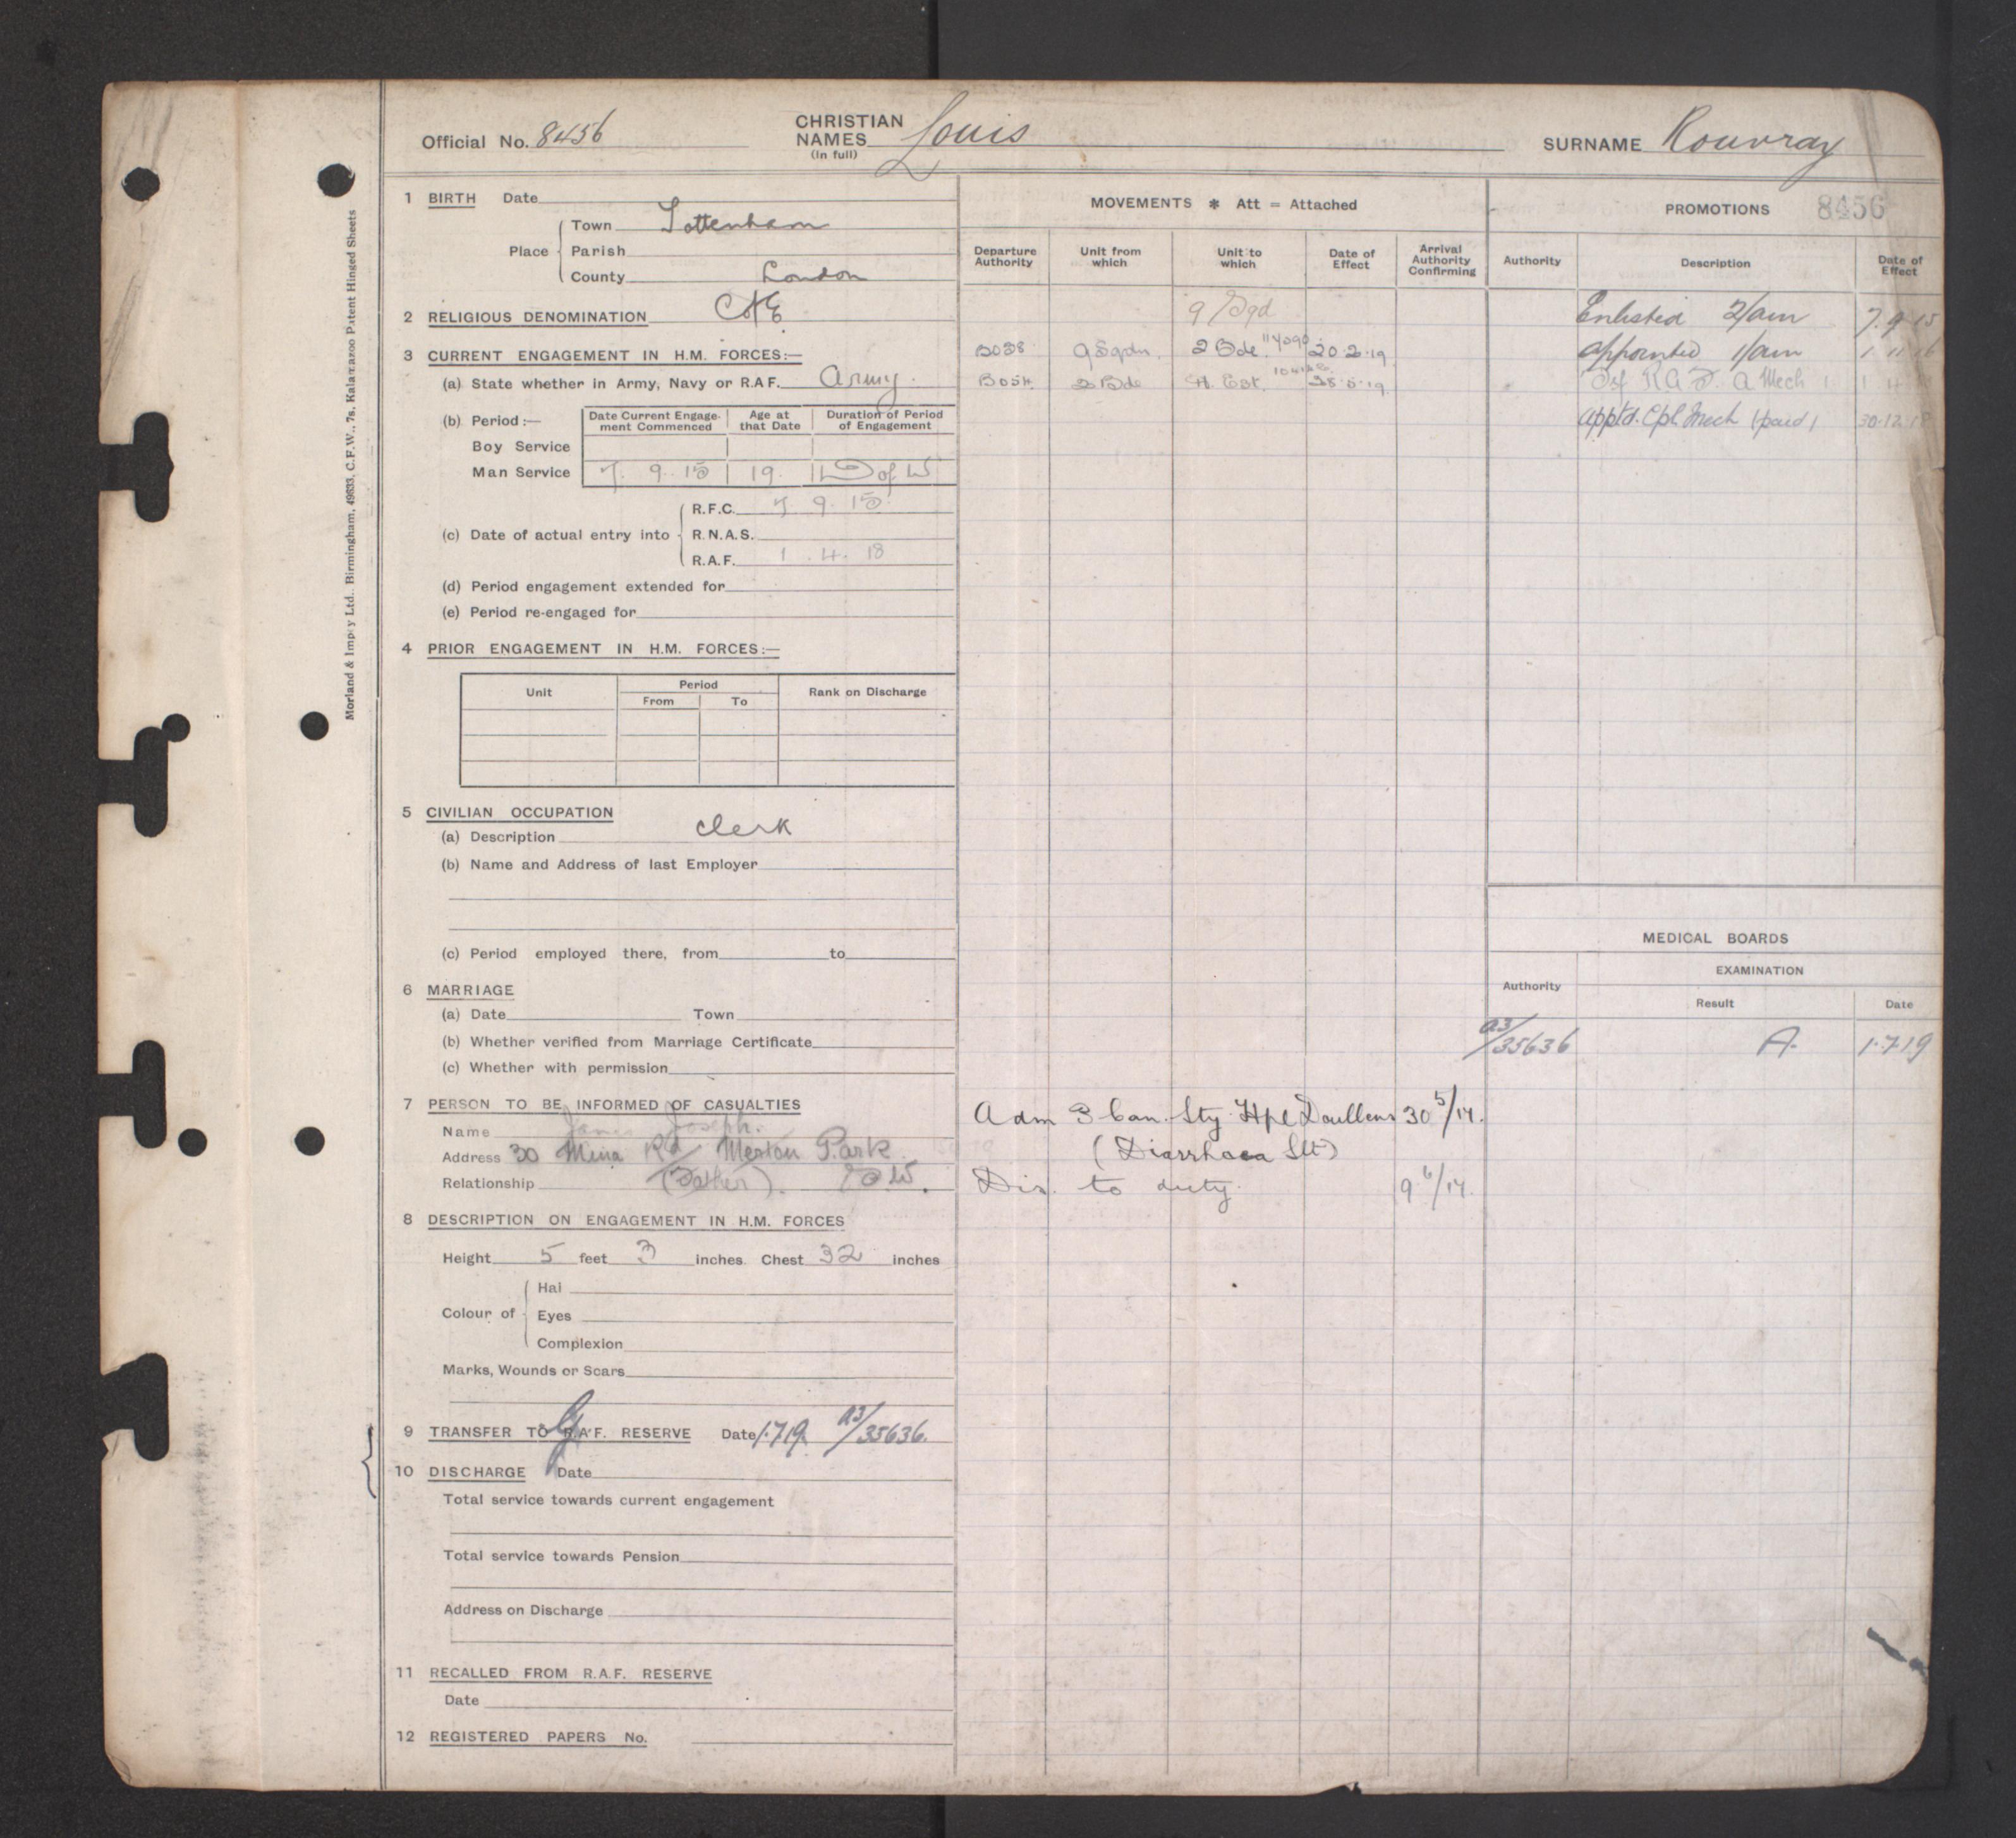 Official No. 8456
CHRISTIAN NAMES (in full) Louis
SURNAME Rouvray
Morland & Impey Ltd., Birmingham, 49833, C.F.W., 7s. Kalamazoo Patent Hinged Sheets
1 BIRTH Date
Place
Town Tottenham
Parish
County London
2 RELIGIOUS DENOMINATION C of E
3 CURRENT ENGAGEMENT IN H.M. FORCES:—
(a) State whether in Army, Navy or R.A.F. Army.
(b) Period:—
Date Current Engagement Commenced
Age at that Date
Duration of Period of Engagement
Boy Service
Man Service 7. 9. 15 19. D of W
(c) Date of actual entry into
R.F.C. 7 9. 15
R.N.A.S.
R.A.F. 1 . 4. 18
(d) Period engagement extended for
(e) Period re-engaged for
4 PRIOR ENGAGEMENT IN H.M. FORCES:—
Unit
Period
From To
Rank on Discharge
5 CIVILIAN OCCUPATION
(a) Description Clerk
(b) Name and Address of last Employer
(c) Period employed there, from to
6 MARRIAGE
(a) Date Town
(b) Whether verified from Marriage Certificate
(c) Whether with permission
7 PERSON TO BE INFORMED OF CASUALTIES
Name Joseph.
Address 30 Mina Rd Merton Park
Relationship (Father). S.W.
8 DESCRIPTION ON ENGAGEMENT IN H.M. FORCES
Height 5 feet 3 inches Chest 32 inches
Colour of
Hai
Eyes
Complexion
Marks, Wounds or Scars
9 TRANSFER TO G R.A.F. RESERVE Date 1.7.19. a3/35636.
10 DISCHARGE Date
Total service towards current engagement
Total service towards Pension
Address on Discharge
11 RECALLED FROM R.A.F. RESERVE
Date
12 REGISTERED PAPERS No.
MOVEMENTS * Att = Attached
Departure Authority
Unit from which
Unit to which
Date of Effect
Arrival Authority Confirming
9 Sqd
B038 9 Sqdn. 2 Bde. 20.2.19
B054 2 Bde H. Est. 28.5.19
Adm 3 Can. Sty. Hpl Doullens 30 5/17.
(Diarrhoea Slt)
Dis. to duty. 9 6/17.
PROMOTIONS 8456
Authority
Description
Date of Effect
Enlisted 2/am 7.9.15
appointed 1/am 1 11 16
Tsf R.A.F. A Mech 1 1 4 18
apptd. Cpl. Mech (paid) 30.12.18
MEDICAL BOARDS
Authority
EXAMINATION
Result
Date
a3/35636 A. 1.7.19